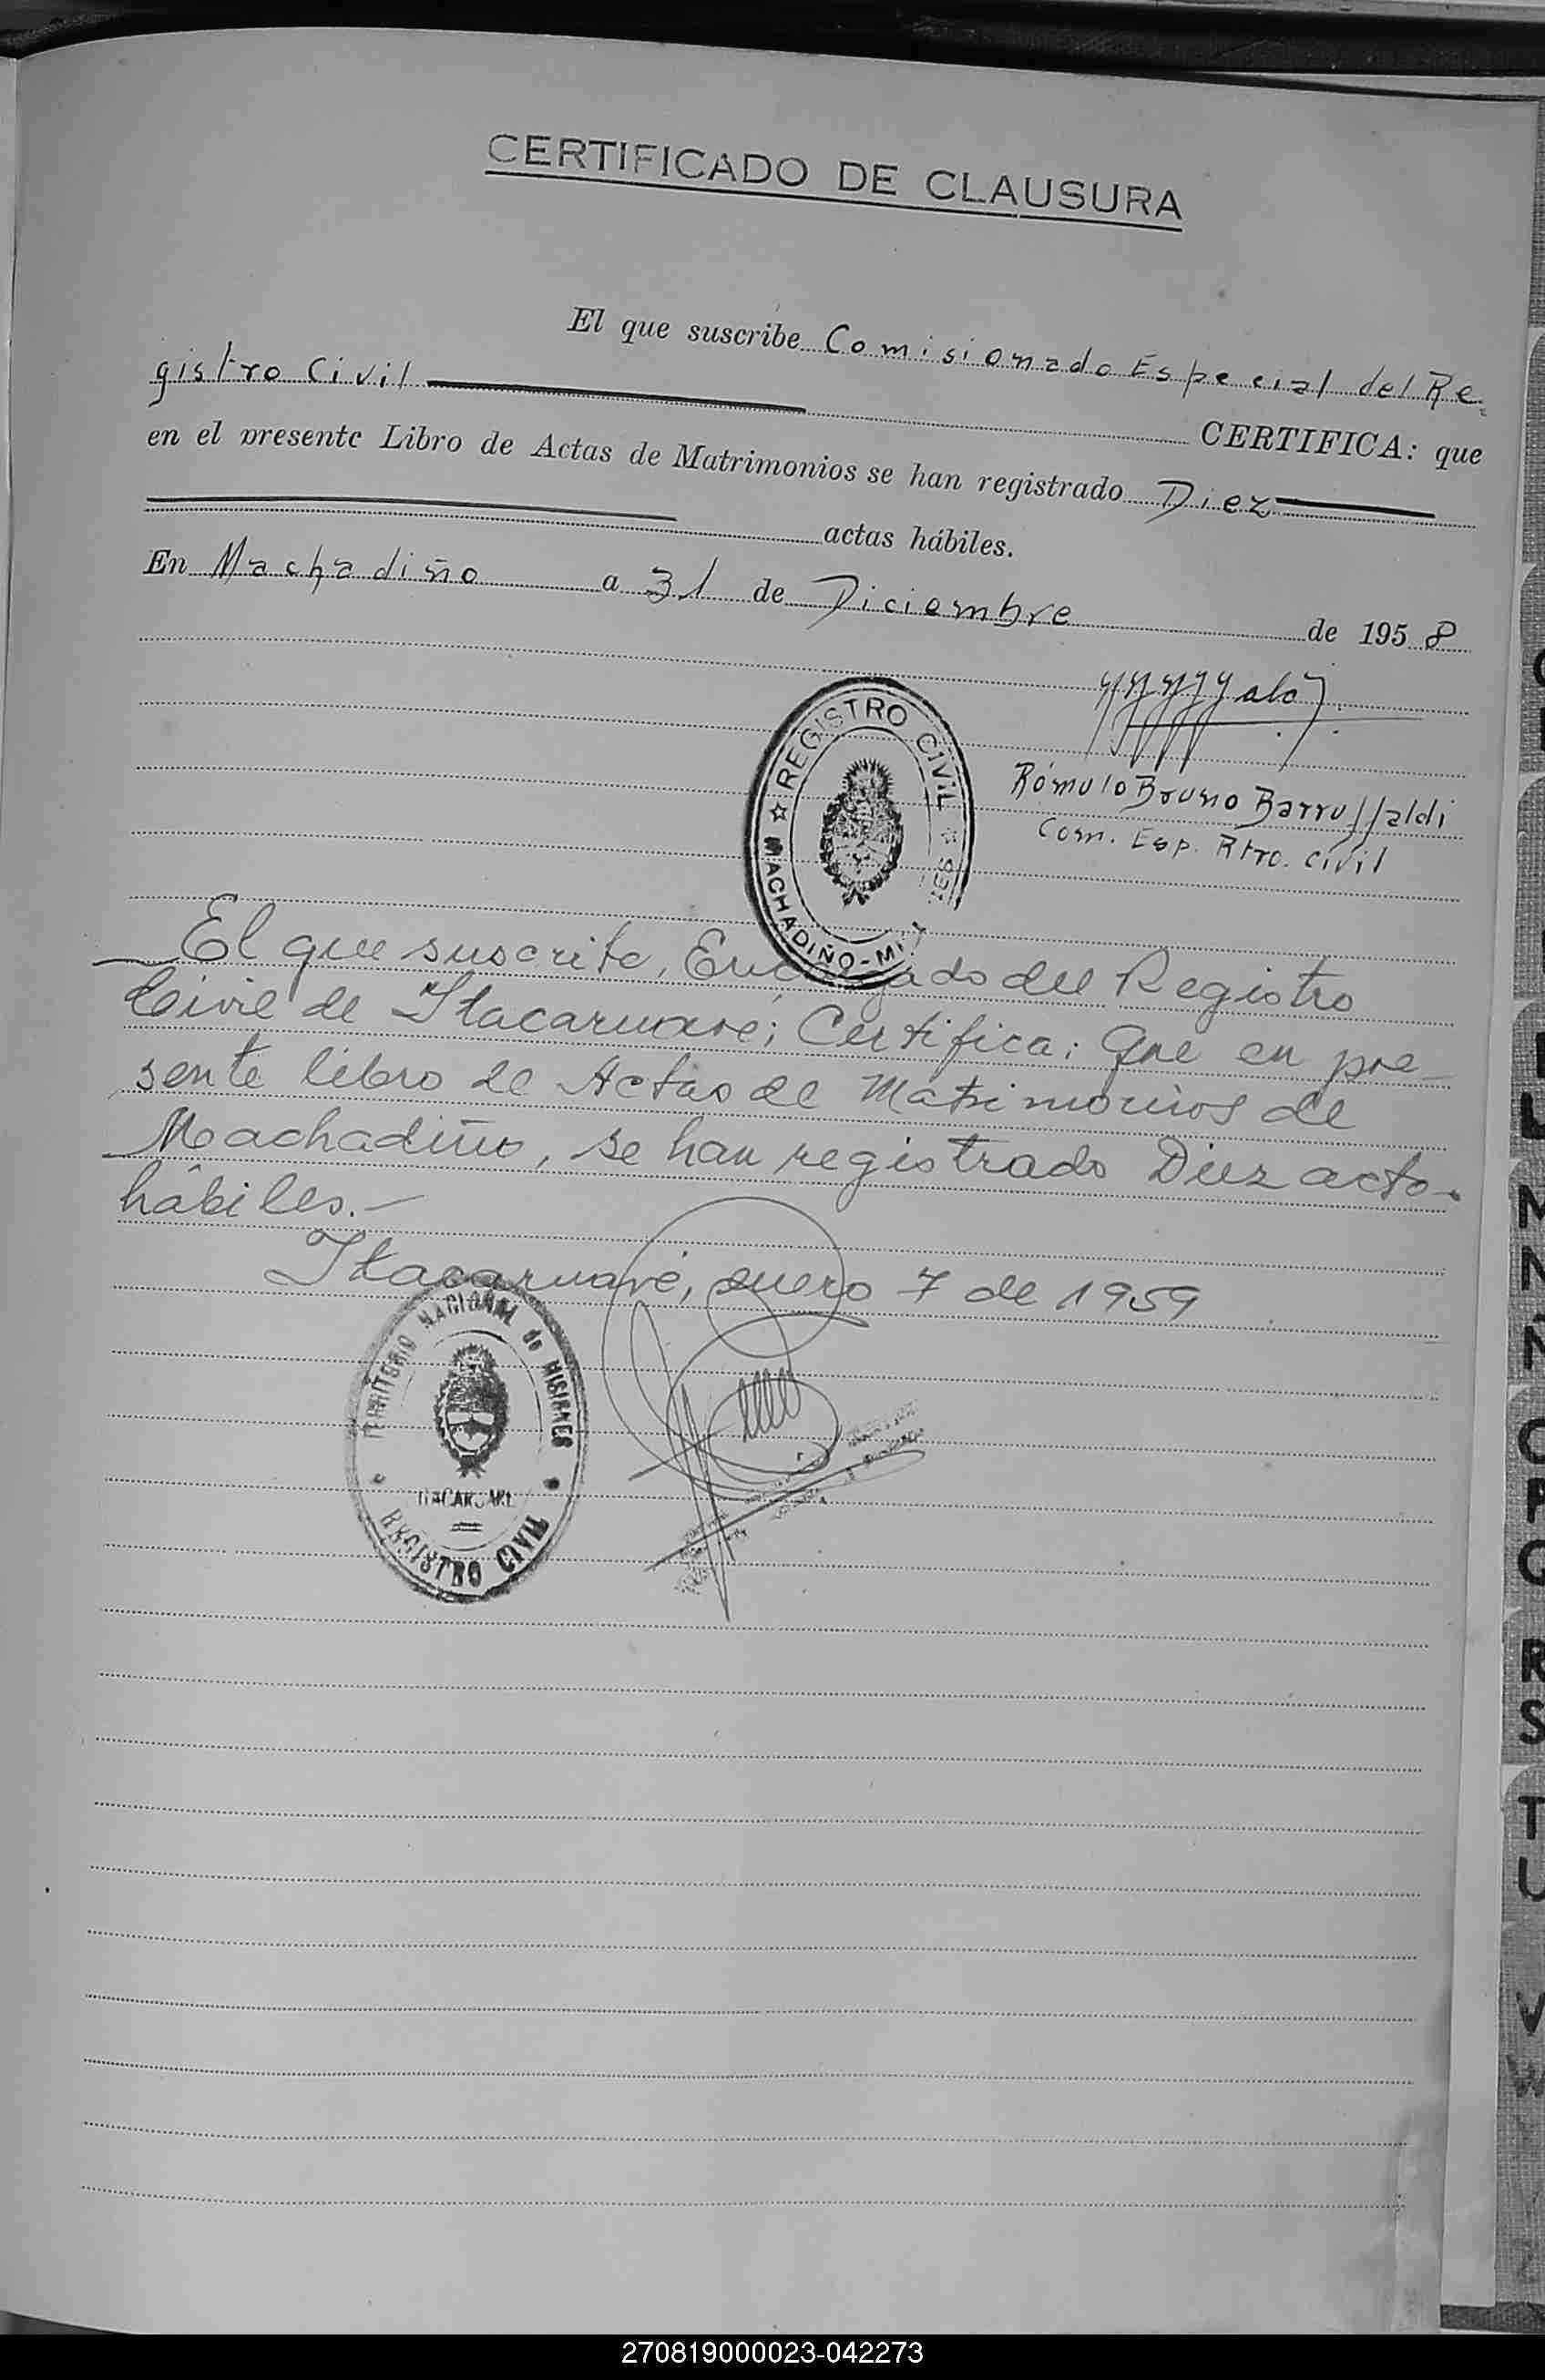 CERTIFICADO DE CLAUSURA
El que suscribe Comisionado Especial del Re
gistro Civil CERTIFICA: que
en el presente Libro de Actas de Matrimonios se han registrado Diez
actas hábiles.
En Machadiño a 31 de Diciembre de 1958
REGISTRO CIVIL
MACHADIÑO - MI
Rómulo Bruno Barruffaldi
Com. Esp. Rtro. Civil
El que suscrite, Encargado del Registro
Civil de Itacaruaré; Certifica: Que en pre-
sente libro de Actas de Matrimonios de
Machadiño, se han registrado Diez acto.
hábiles.-
Itacaruaré, enero 7 de 1959
TERRITORIO NACIONAL de MISIONES
ITACARUARE
REGISTRO CIVIL
L
M
N
Ñ
O
P
Q
R
S
T
U
V
W
270819000023-042273